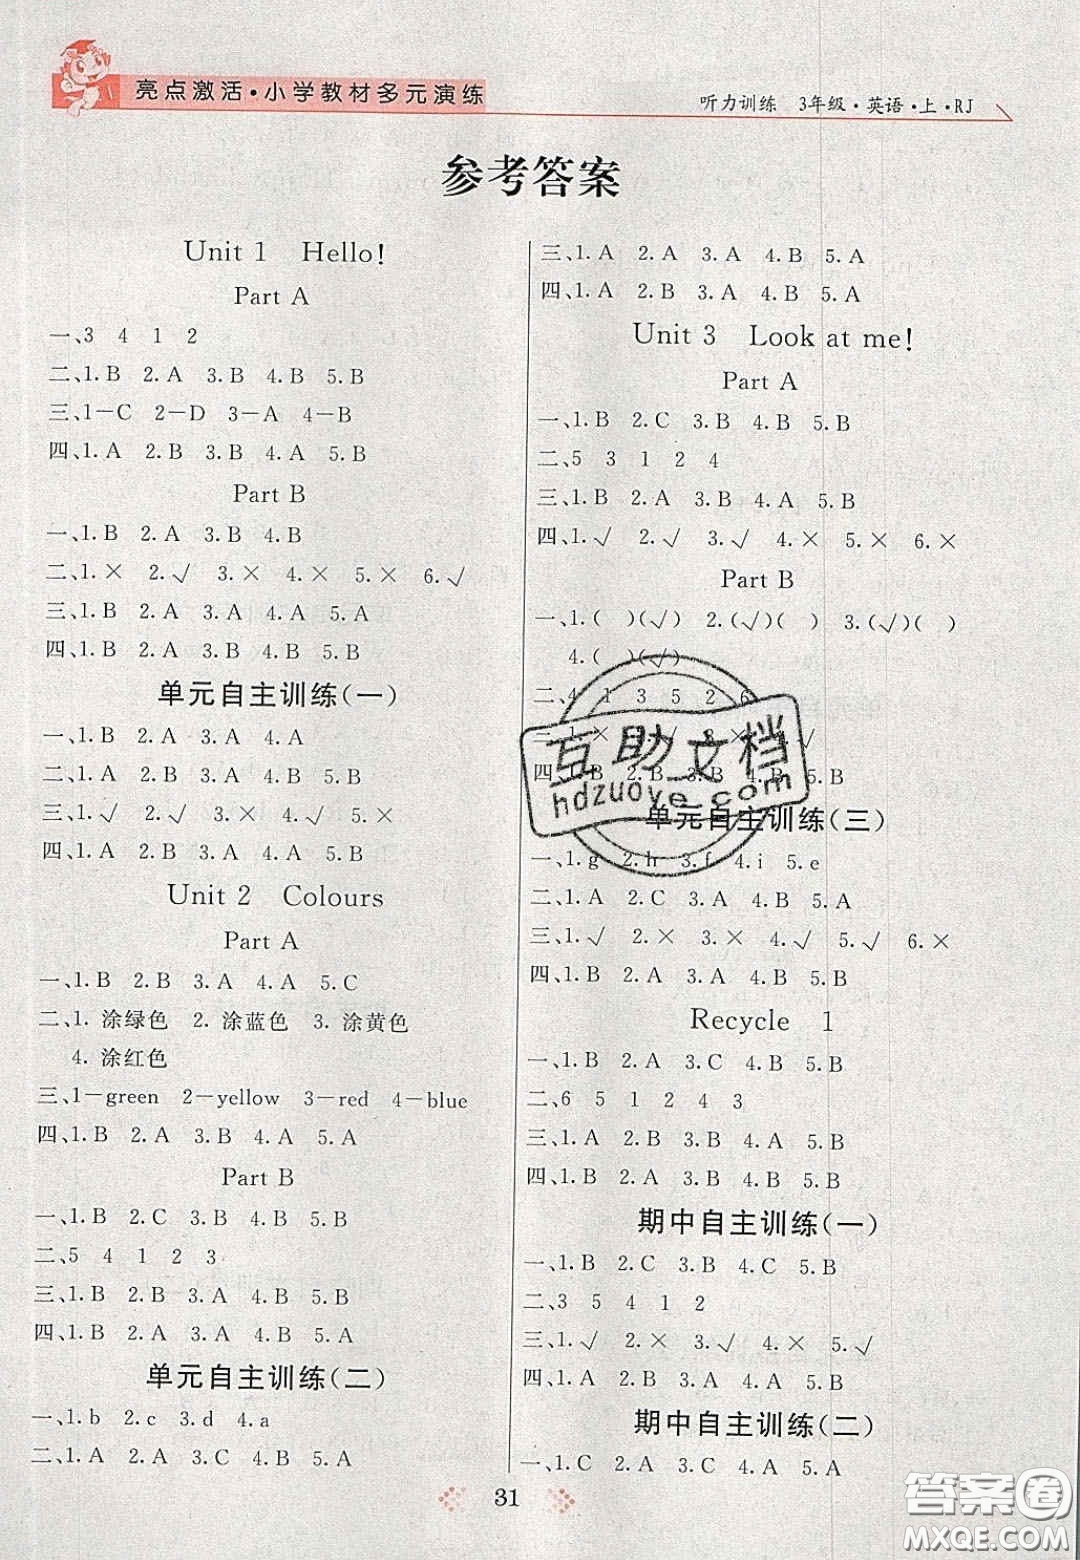 亮点激活·小学教材多元演练
听力训练 3年级·英语·上·RJ
参考答案
Unit 1 Hello!
Part A
一、3 4 1 2
二、1. B 2. A 3. B 4. B 5. B
三、1—C 2—D 3—A 4—B
四、1. A 2. B 3. B 4. A 5. B
Part B
一、1. B 2. A 3. B 4. B
二、1. × 2. √ 3. × 4. × 5. × 6. √
三、1. B 2. A 3. A 4. A 5. A
四、1. B 2. A 3. B 4. B 5. B
单元自主训练(一)
一、1. B 2. A 3. A 4. A
二、1. A 2. A 3. B 4. B 5. B
三、1. √ 2. √ 3. × 4. √ 5. ×
四、1. B 2. A 3. B 4. A 5. A
Unit 2 Colours
Part A
一、1. B 2. B 3. A 4. A 5. C
二、1. 涂绿色 2. 涂蓝色 3. 涂黄色
4. 涂红色
三、1—green 2—yellow 3—red 4—blue
四、1. B 2. A 3. B 4. A 5. A
Part B
一、1. B 2. C 3. B 4. B 5. B
二、5 4 1 2 3
三、1. B 2. B 3. A 4. B 5. B
四、1. B 2. A 3. B 4. B 5. A
单元自主训练(二)
一、1. b 2. c 3. d 4. a
二、1. A 2. A 3. C 4. B 5. A
三、1. A 2. A 3. A 4. B 5. A
四、1. A 2. B 3. A 4. B 5. A
Unit 3 Look at me!
Part A
一、1. B 2. C 3. B 4. B 5. B
二、5 3 1 2 4
三、1. B 2. A 3. B 4. A 5. B
四、1. √ 2. √ 3. √ 4. × 5. × 6. ×
Part B
一、1. ( )(√) 2. (√)( ) 3. (√)( )
4. ( )(√)
二、4 1 3 5 2 6
三、1. × 2. √ 3. × 4. √
四、1. B 2. B 3. A 4. B 5. B
单元自主训练(三)
一、1. g 2. h 3. f 4. i 5. e
二、1. A 2. C 3. A 4. B 5. A
三、1. √ 2. × 3. × 4. √ 5. √ 6. ×
四、1. B 2. A 3. A 4. B 5. B
Recycle 1
一、1. B 2. A 3. C 4. B 5. A
二、6 5 1 2 4 3
三、1. A 2. B 3. B 4. A 5. B
四、1. B 2. A 3. B 4. B 5. B
期中自主训练(一)
一、1. B 2. C 3. B 4. C 5. B
二、3 5 4 1 2
三、1. √ 2. × 3. √ 4. × 5. √
四、1. A 2. B 3. A 4. B 5. B
期中自主训练(二)
一、1. C 2. B 3. A 4. B 5. A
31
互助文档
hdzuoye.com
答案圈
MXQE.COM